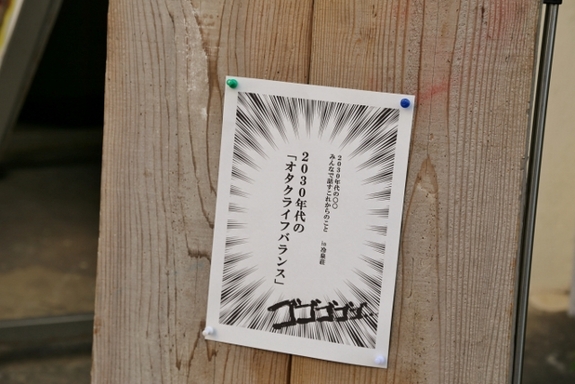 2030年代の〇〇
みんなで話すこれからのこと in 冷泉荘
2030年代の
「オタクライフバランス」
ゴゴゴゴゴ…